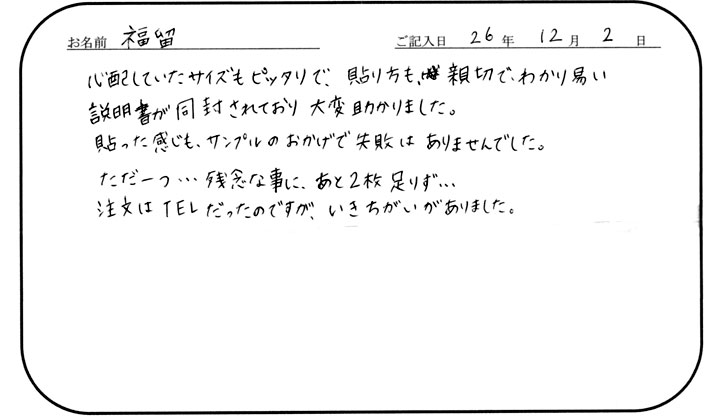 お名前 福留 ご記入日 26年 12月 2日
心配していたサイズもピッタリで、貼り方も、親切で、わかり易い
説明書が同封されており大変助かりました。
貼った感じも、サンプルのおかげで失敗はありませんでした。
ただ一つ…残念な事に、あと2枚足りず…
注文はTELだったのですが、いきちがいがありました。